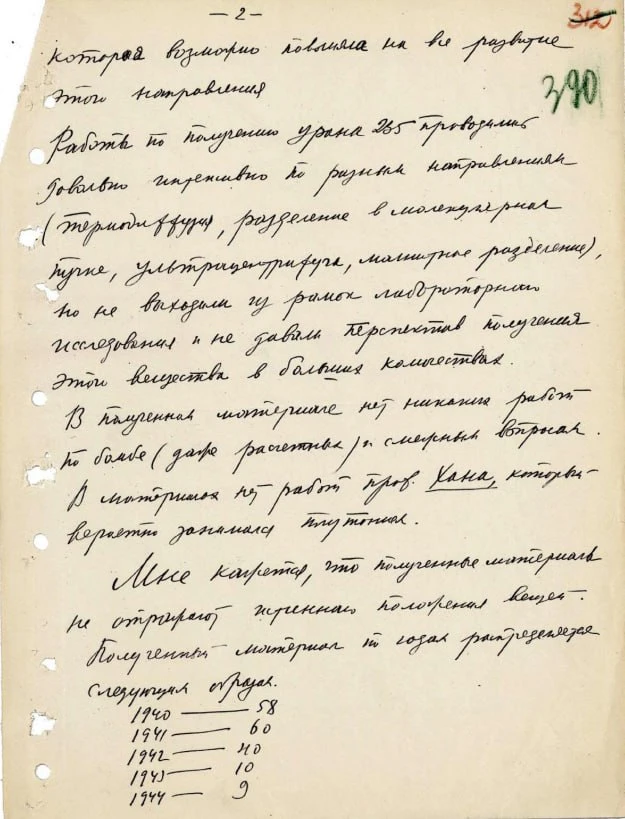 — 2 —
312
390
которая возможно повлияла на все развитие
этого направления
Работы по получению урана 235 проводились
довольно интенсивно по разным направлениям
(термодиффузия, разделение в молекулярном
пучке, ультрацентрифуга, магнитное разделение),
но не выходили из рамок лабораторного
исследования и не давали перспектив получения
этого вещества в больших количествах.
В полученном материале нет никаких работ
по бомбе (даже расчетных) и смежным вопросам.
В материалах нет работ проф. Хана, который
вероятно занимался плутонием.
Мне кажется, что полученные материалы
не отражают истинного положения вещей.
Полученный материал по годам распределяется
следующим образом.
1940 — 58
1941 — 60
1942 — 40
1943 — 10
1944 — 9